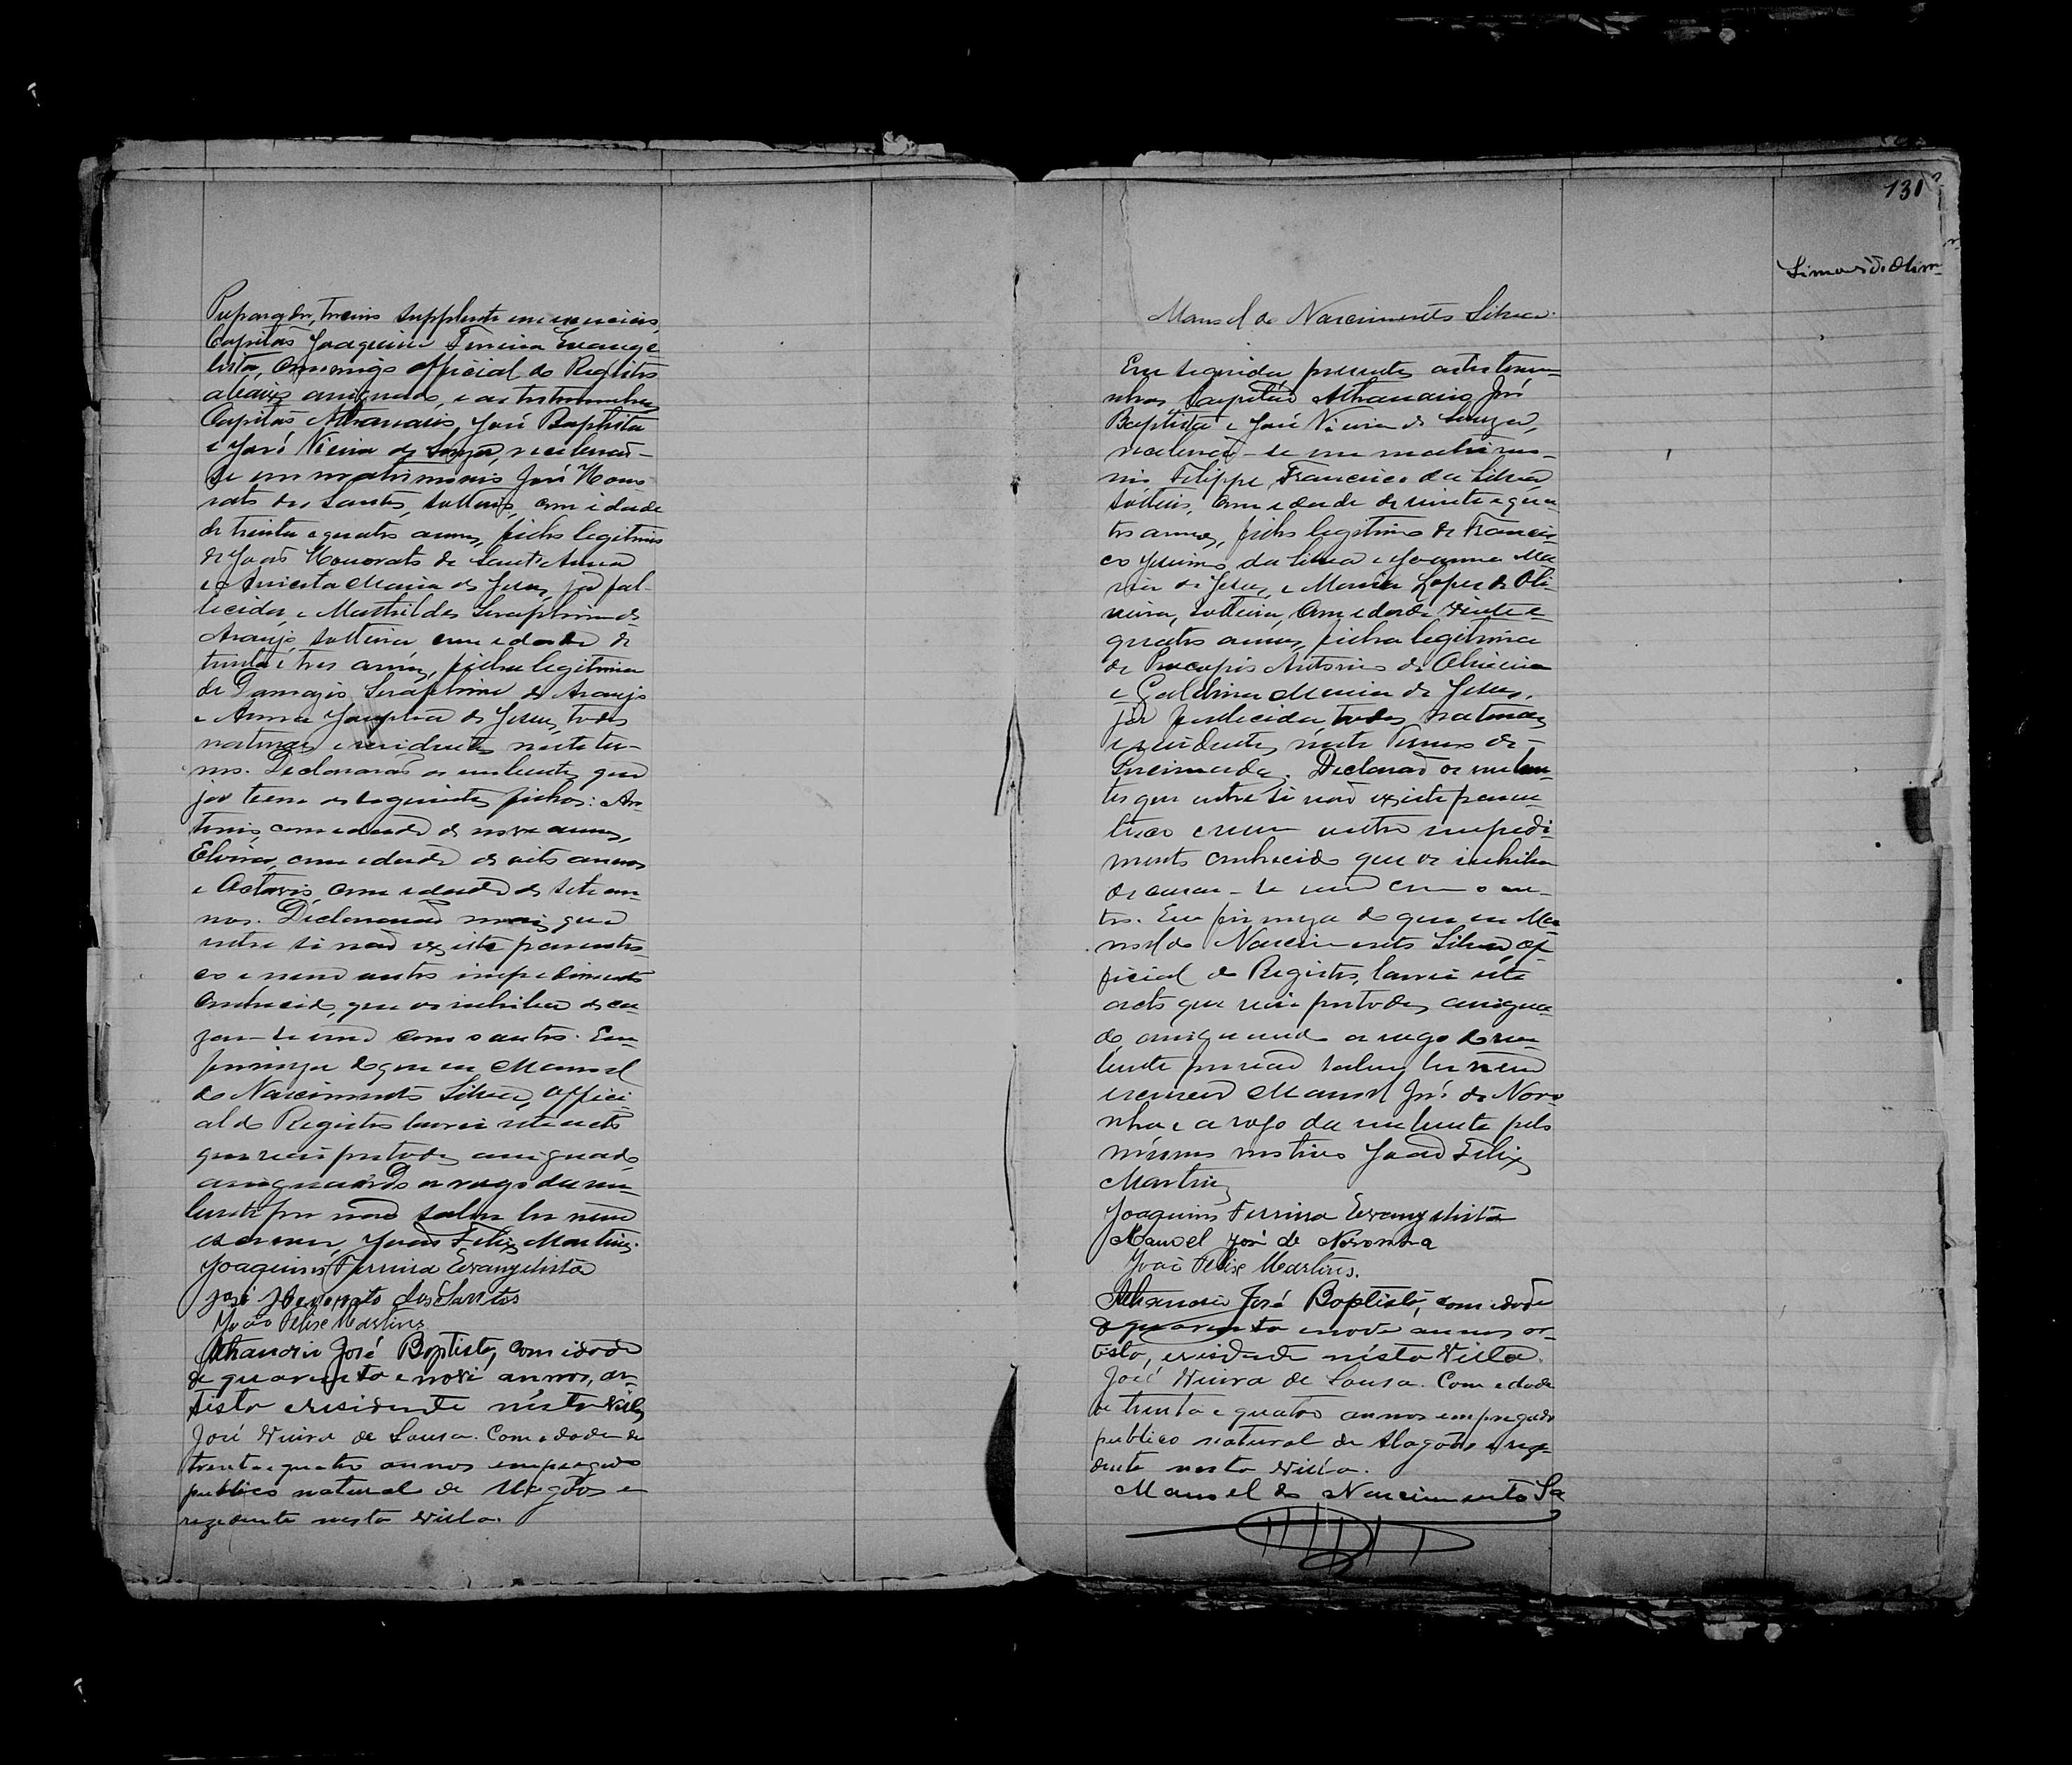 Preparador, terceiro supplente em exercicio,
Capitão Joaquim Ferreira Evange-
lista, commigo official do Registro
abaixo assignado, e as testemunhas
Capitão Athanasio José Baptista
e José Vieira de Souza, receberão-
se em matrimonio José Hono-
rato dos Santos, solteiro, com idade
de trinta e quatro annos, filho legitimo
de João Honorato de Sant'Anna
e Aniceta Maria de Jesus, já fal-
lecidos, e Mathildes Seraphim de
Araujo, solteira com edade de
trinta e tres annos, filha legitima
de Damazio Seraphim de Araujo
e Anna Josepha de Jesus, todos
naturaes e residentes neste ter-
mo. Declararão os nubentes que
já teem os seguintes filhos: An-
tonio, com edade de nove annos,
Elvira, com edade de oito annos
e Octavio, com edade de sete an-
nos. Declararão mais que
entre si não existe parentes-
co e nem outro impedimento
conhecido, que os inhiba de ca-
zar-se um com o outro. Em
firmeza do que eu Manoel
do Nascimento Silva, offici-
al do Registro lavrei este acto
que vai por todos assignado,
assignando a rogo da nu-
bente por não saber ler nem
escrever, João Felix Martins.
Joaquim Ferreira Evangelista
José Honorato dos Santos
João Felix Martins
Athanasio José Baptista, com idade
de quarenta e nove annos, ar-
tista e residente nesta Villa
José Vieira de Sousa. Com edade de
trenta e quatro annos empregado
publico natural de Alagôas e
rezedente nesta Villa.
131
Manoel do Nascimento Silva.
Em seguida presentes as testemu-
nhas Capitão Athanasio José
Baptista e José Vieira de Souza,
receberão-se em matrimo-
nio Filippe Francisco da Silva
solteiro, com edade de vinte e qua-
tro annos, filho legitimo de Francis-
co da Silva e Joanna Ma-
ria de Jesus, e Maria Lopes de Oli-
veira, solteira, com edade vinte e
quatro annos, filha legitima
de Procopio Antonio de Oliveira
e Galdina Maria de Jesus,
já fallecida todos naturaes
e residentes neste Termo de
Queimadas. Declarão os nuben-
tes que entre si não existe paren-
tesco e nem outro impedi-
mento conhecido que os inhiba
de casar-se um com o ou-
tro. Em firmeza do que eu Ma-
noel do Nascimento Silva, of-
ficial do Registro, lavrei este
acto que vai por todos assigna-
do, assignando a rogo do nu-
bente por não saber ler nem
escrever Manoel José de Noro-
nha e a rogo da nubente pelo
mesmo motivo João Felix
Martins
Joaquim Ferreira Evangelista
Manoel José de Noronha
João Felix Martins.
Athanasio José Baptista, com idade
de quarenta e nove annos ar-
tista, e residente nesta Villa.
José Vieira de Sousa. Com edade
de trenta e quatro annos empregado
publico natural de Alagôas e reze-
dente nesta Villa.
Manoel do Nascimento Sa